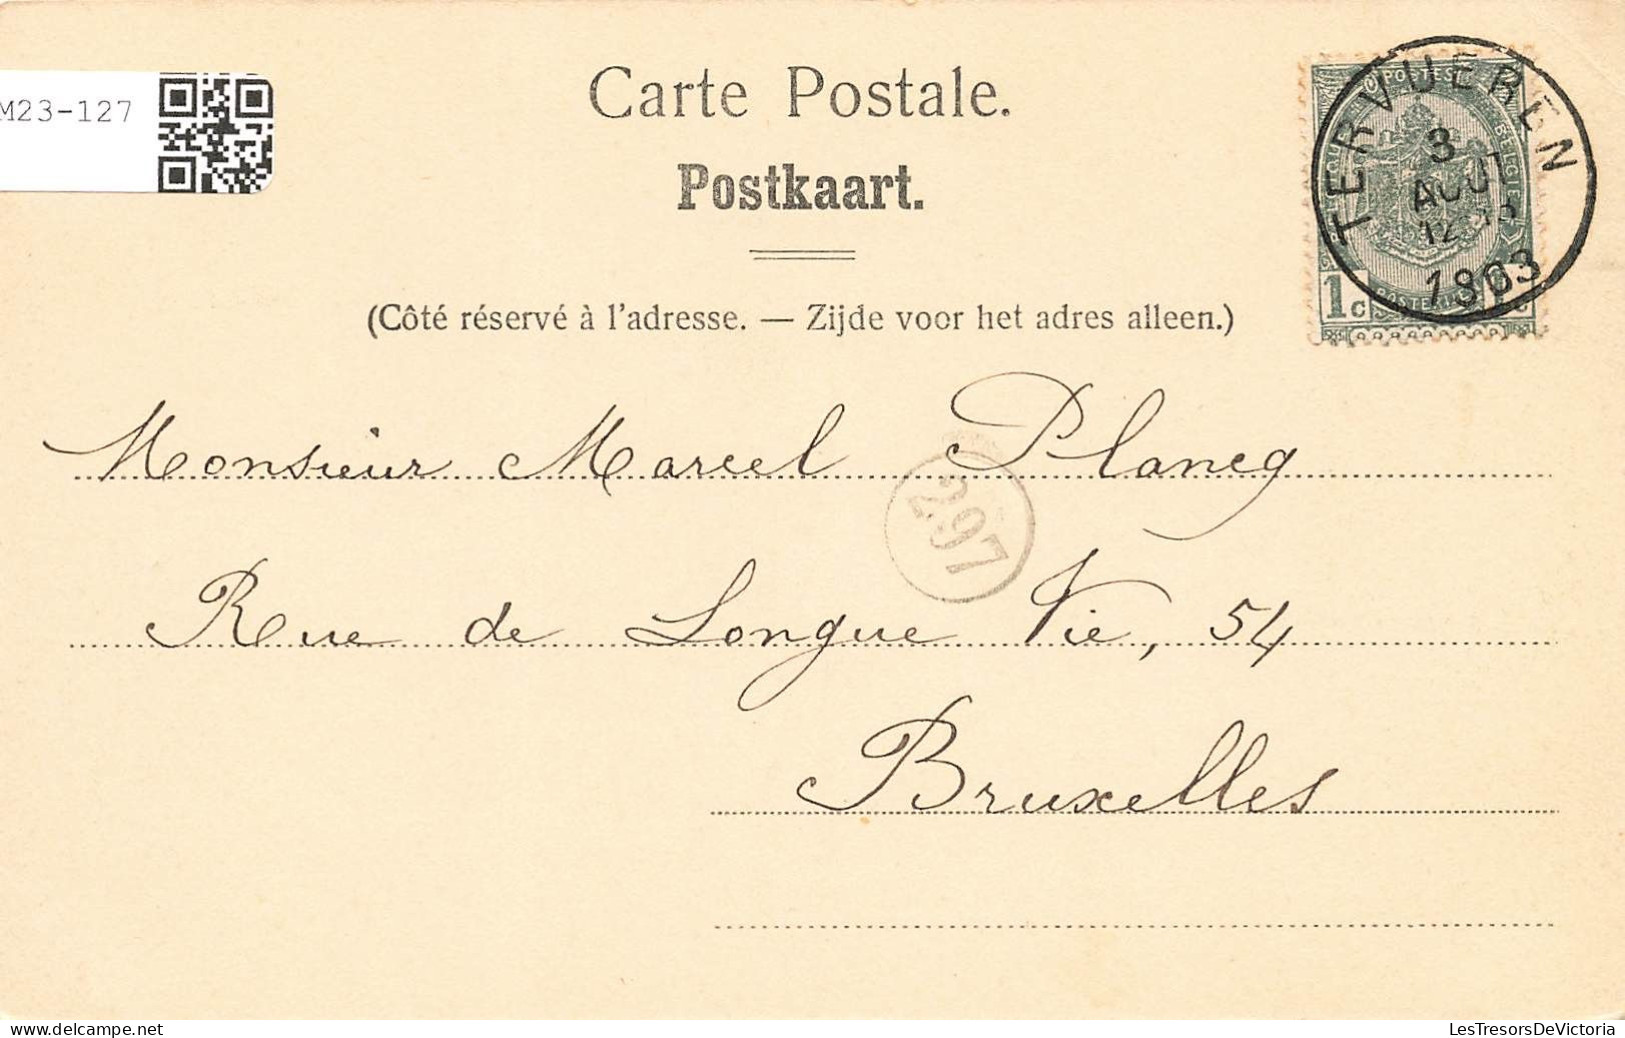 M23-127
Carte Postale.
Postkaart.
(Côté réservé à l'adresse. — Zijde voor het adres alleen.)
TERVUEREN
3
AOUT
1903
POSTES
BELGIE
1c
Monsieur Marcel Plancq
297
Rue de Longue Vie, 54
Bruxelles
LesTresorsDeVictoria